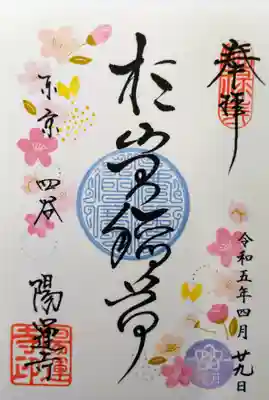 奉拝
令和五年四月廿九日
於岩稲荷
東京 四谷
陽運寺